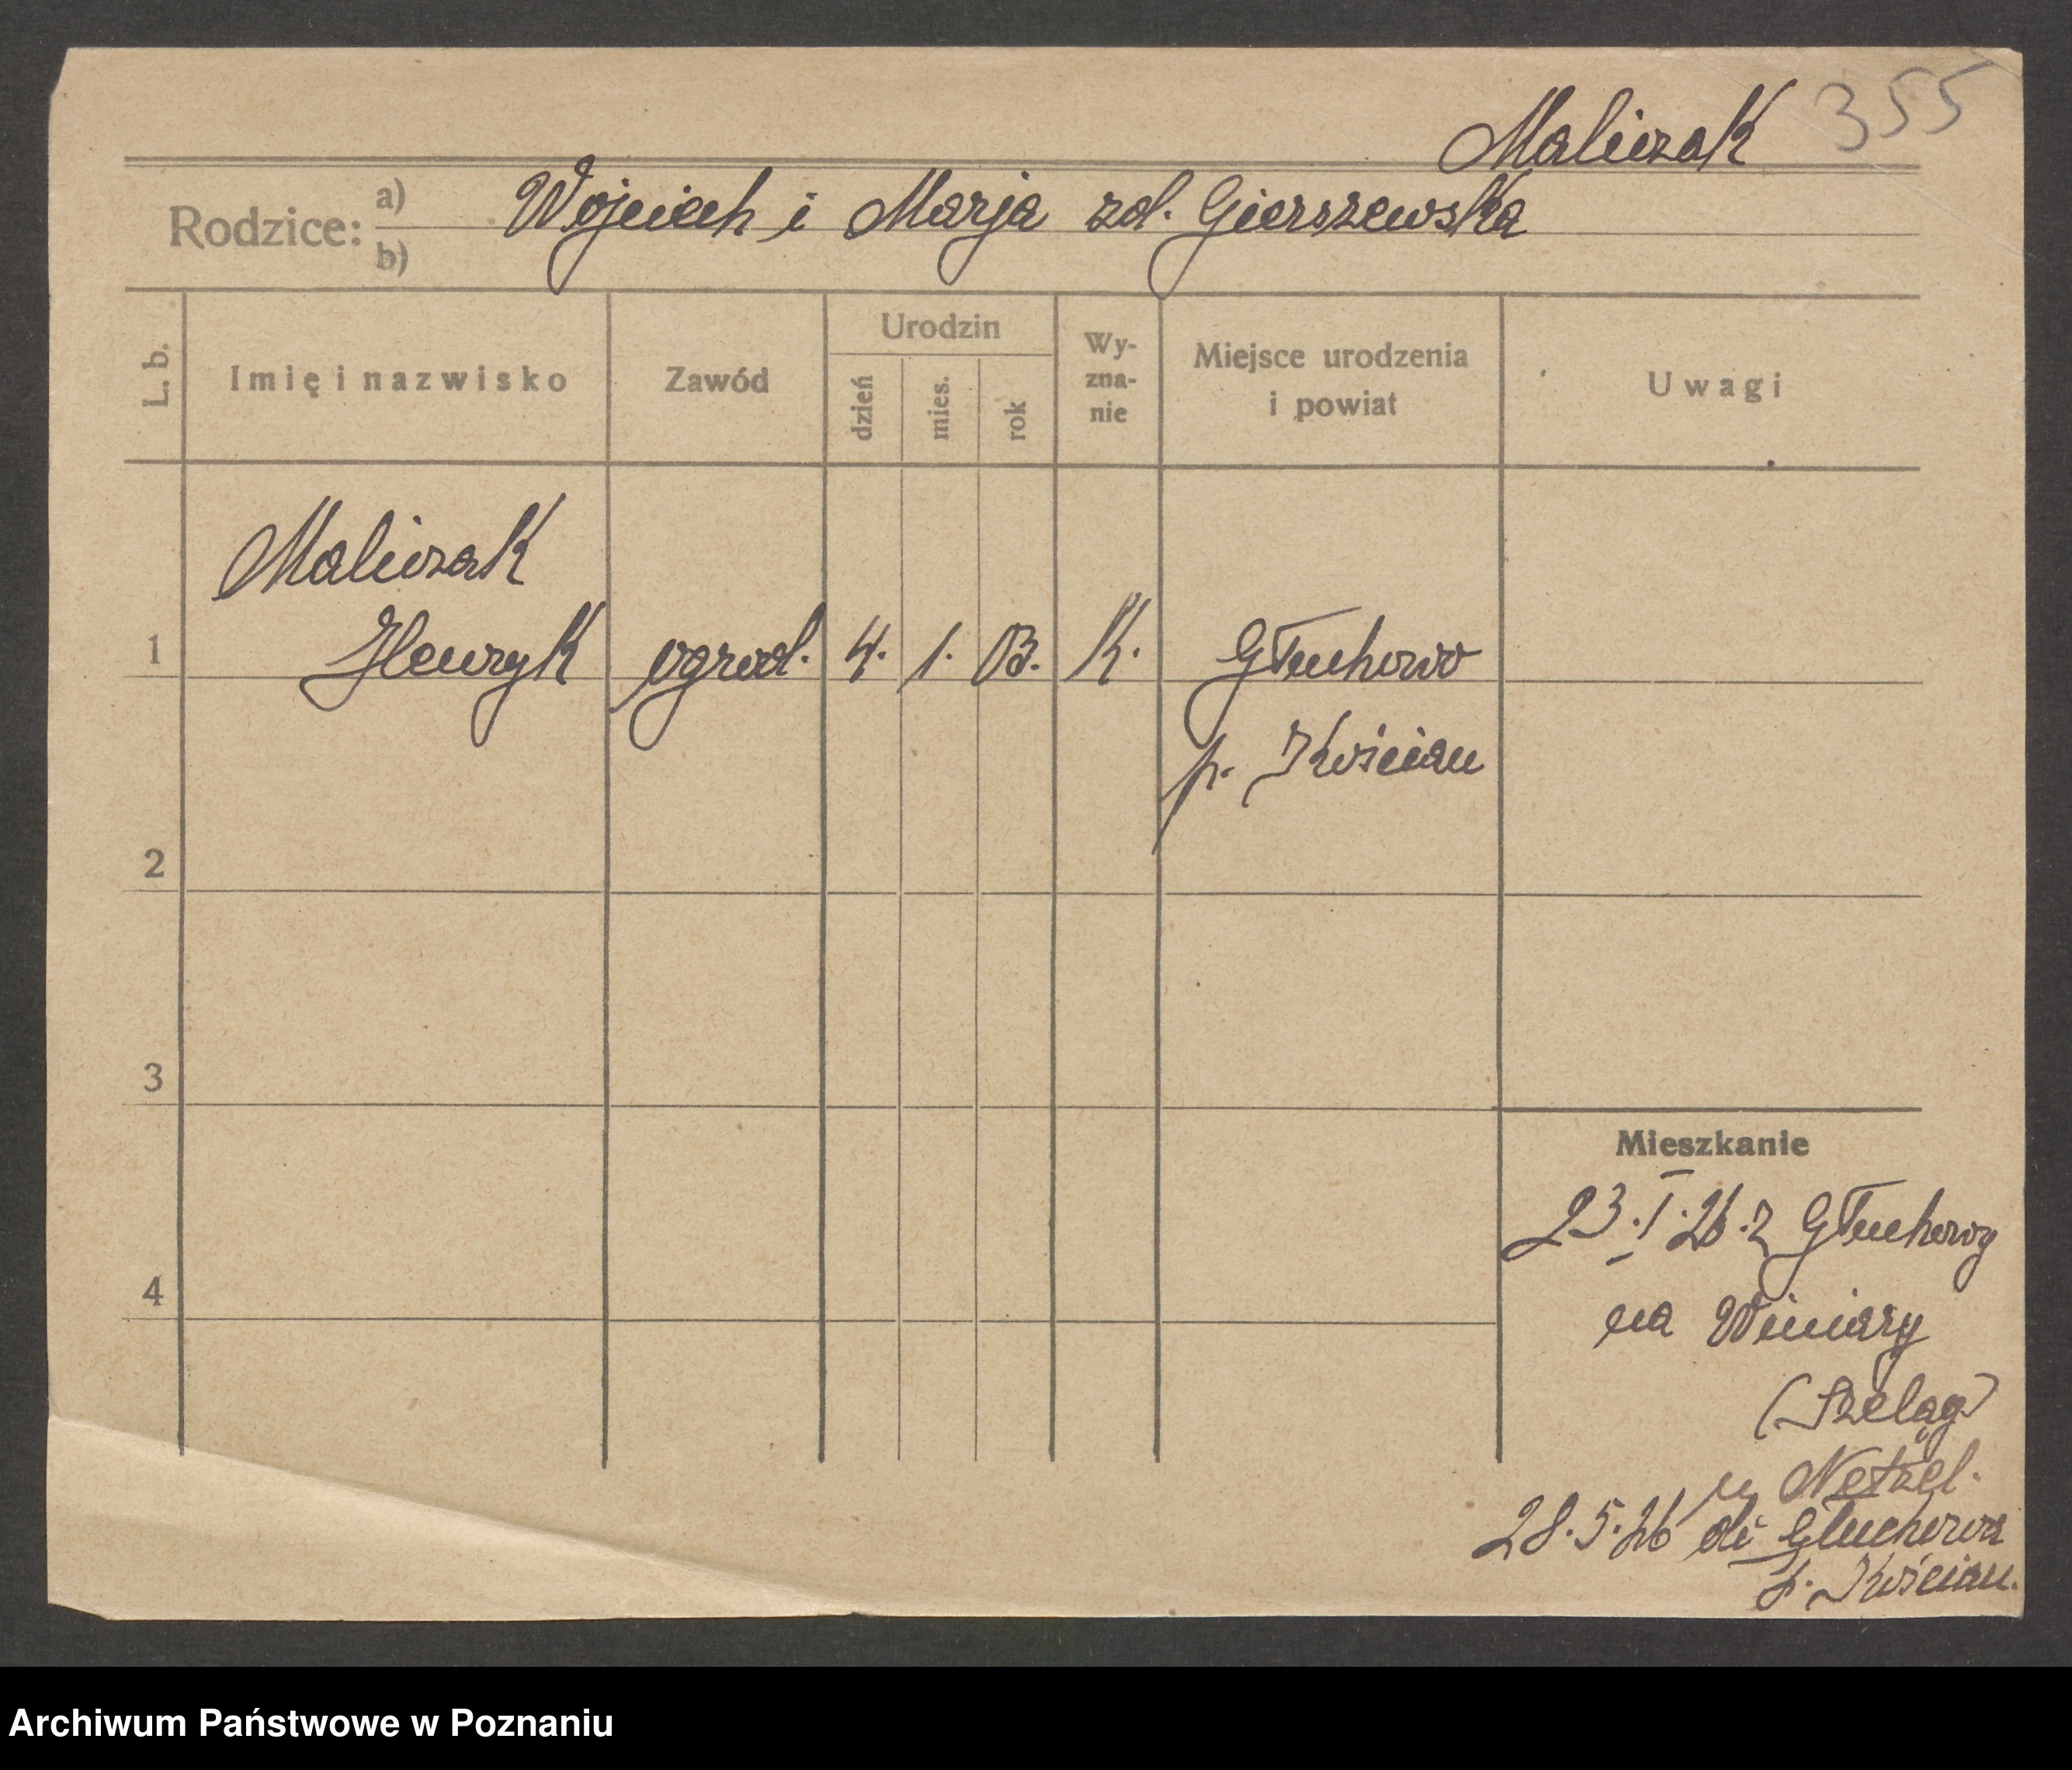 355
Maliczak
Rodzice: a) b) Wojciech i Marja zd. Gierszewska
L. b. Imię i nazwisko Zawód Urodzin dzień mies. rok Wy-zna-nie Miejsce urodzenia i powiat Uwagi
Maliczak
1 Henryk ogrod. 4. 1. 03. K. Głuchowo
p. Kościan
2
3
Mieszkanie
23.I.26.z Głuchowy
4
na Winiary
(Szeląg)
u Netzel.
28.5.26 do Głuchowa
p. Kościan.
Archiwum Państwowe w Poznaniu